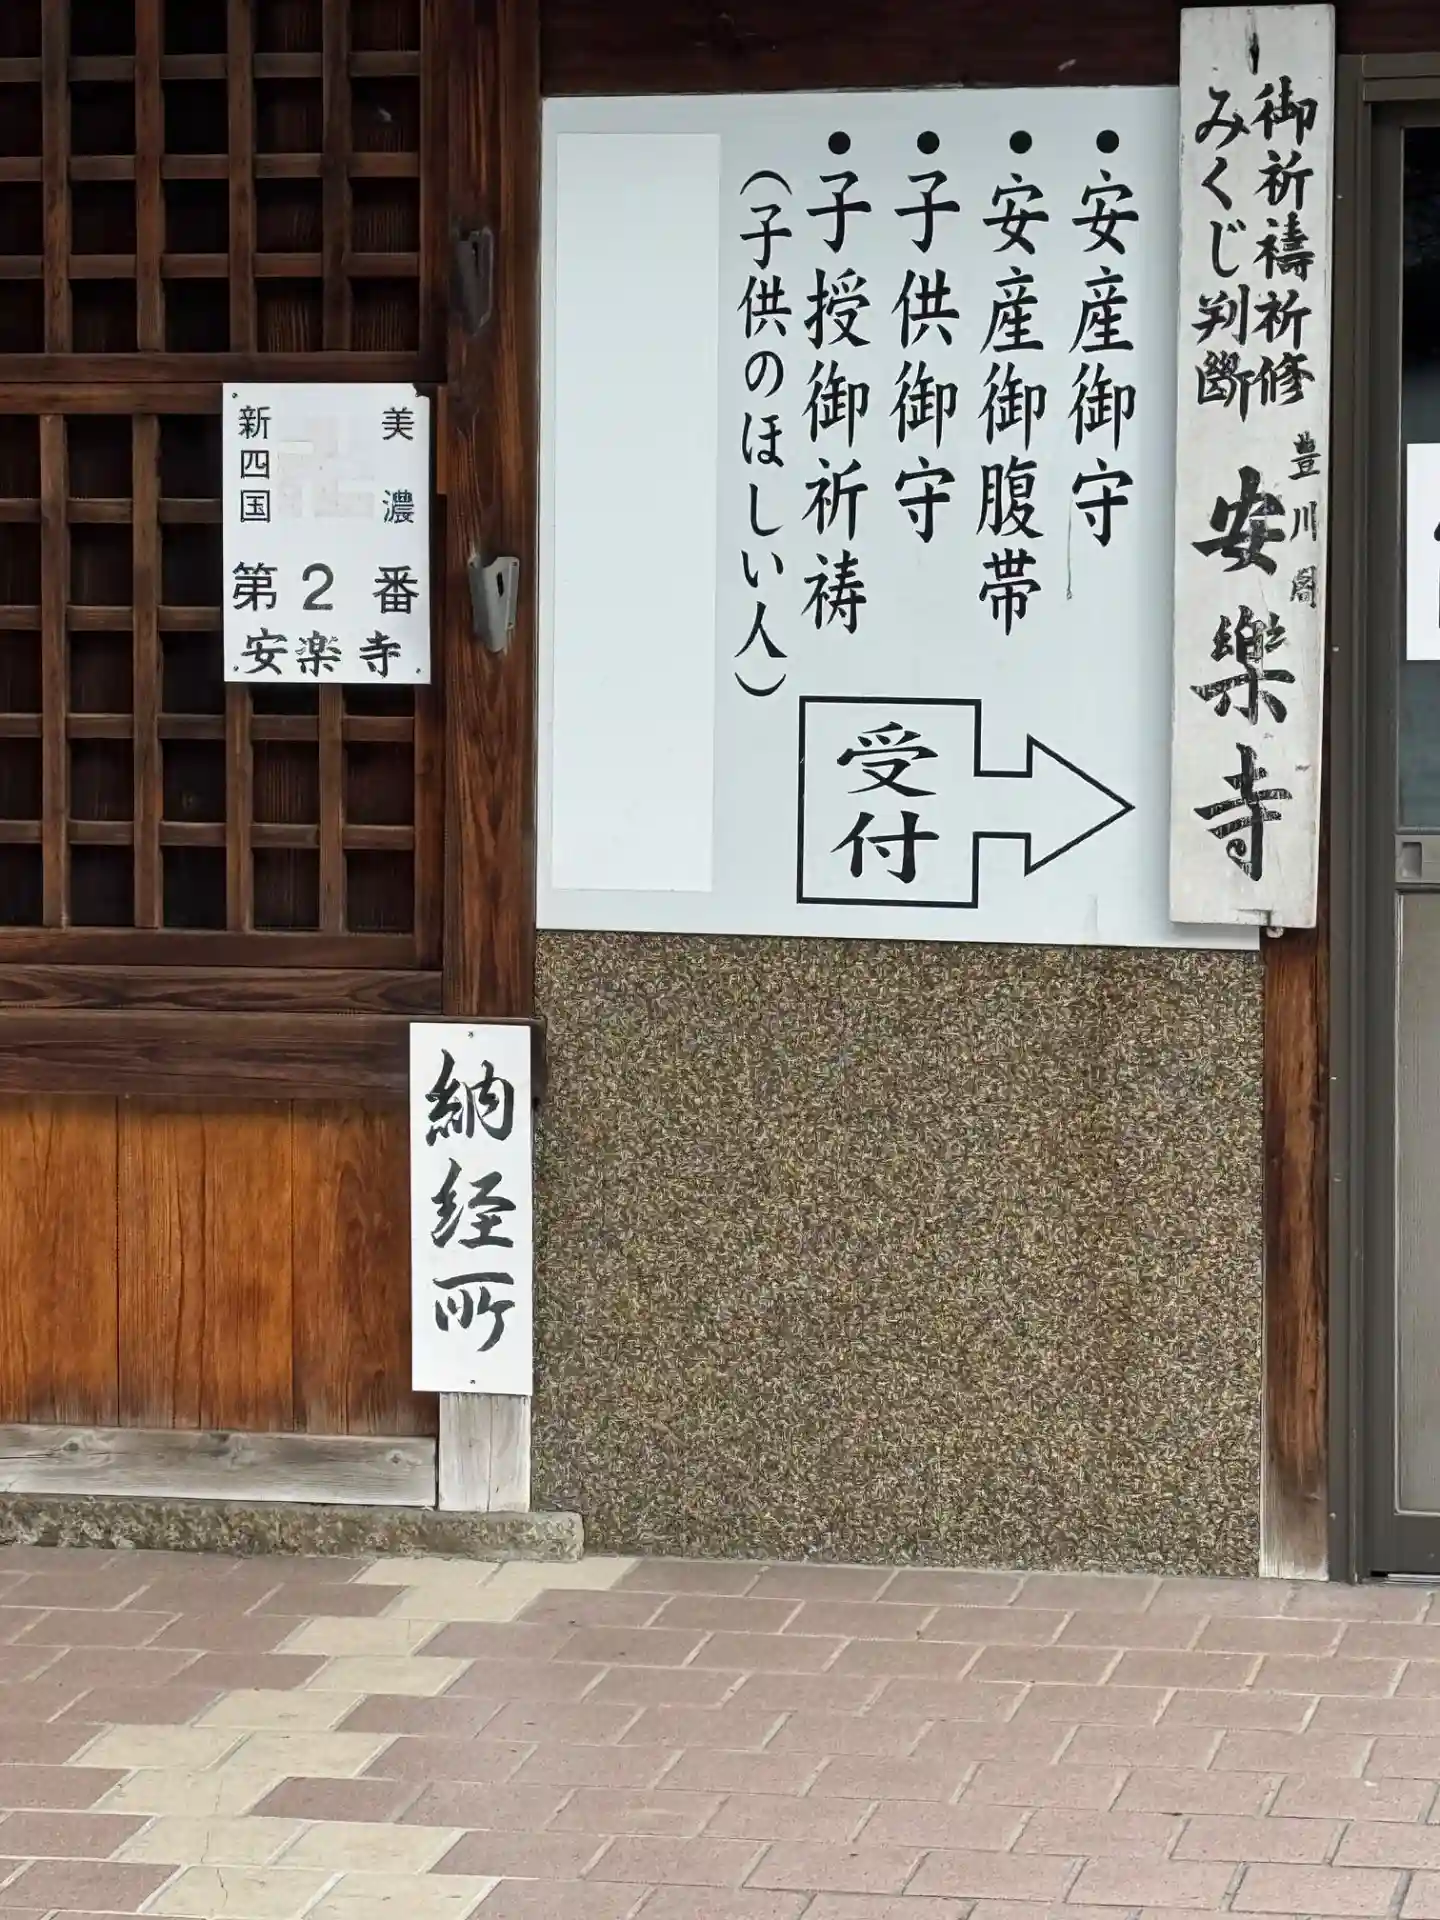 御祈祷祈修
みくじ判斷
豊川閣
安樂寺
●安産御守
●安産御腹帯
●子供御守
●子授御祈祷
(子供のほしい人)
受付
美濃
新四国
第2番
安楽寺
納経所